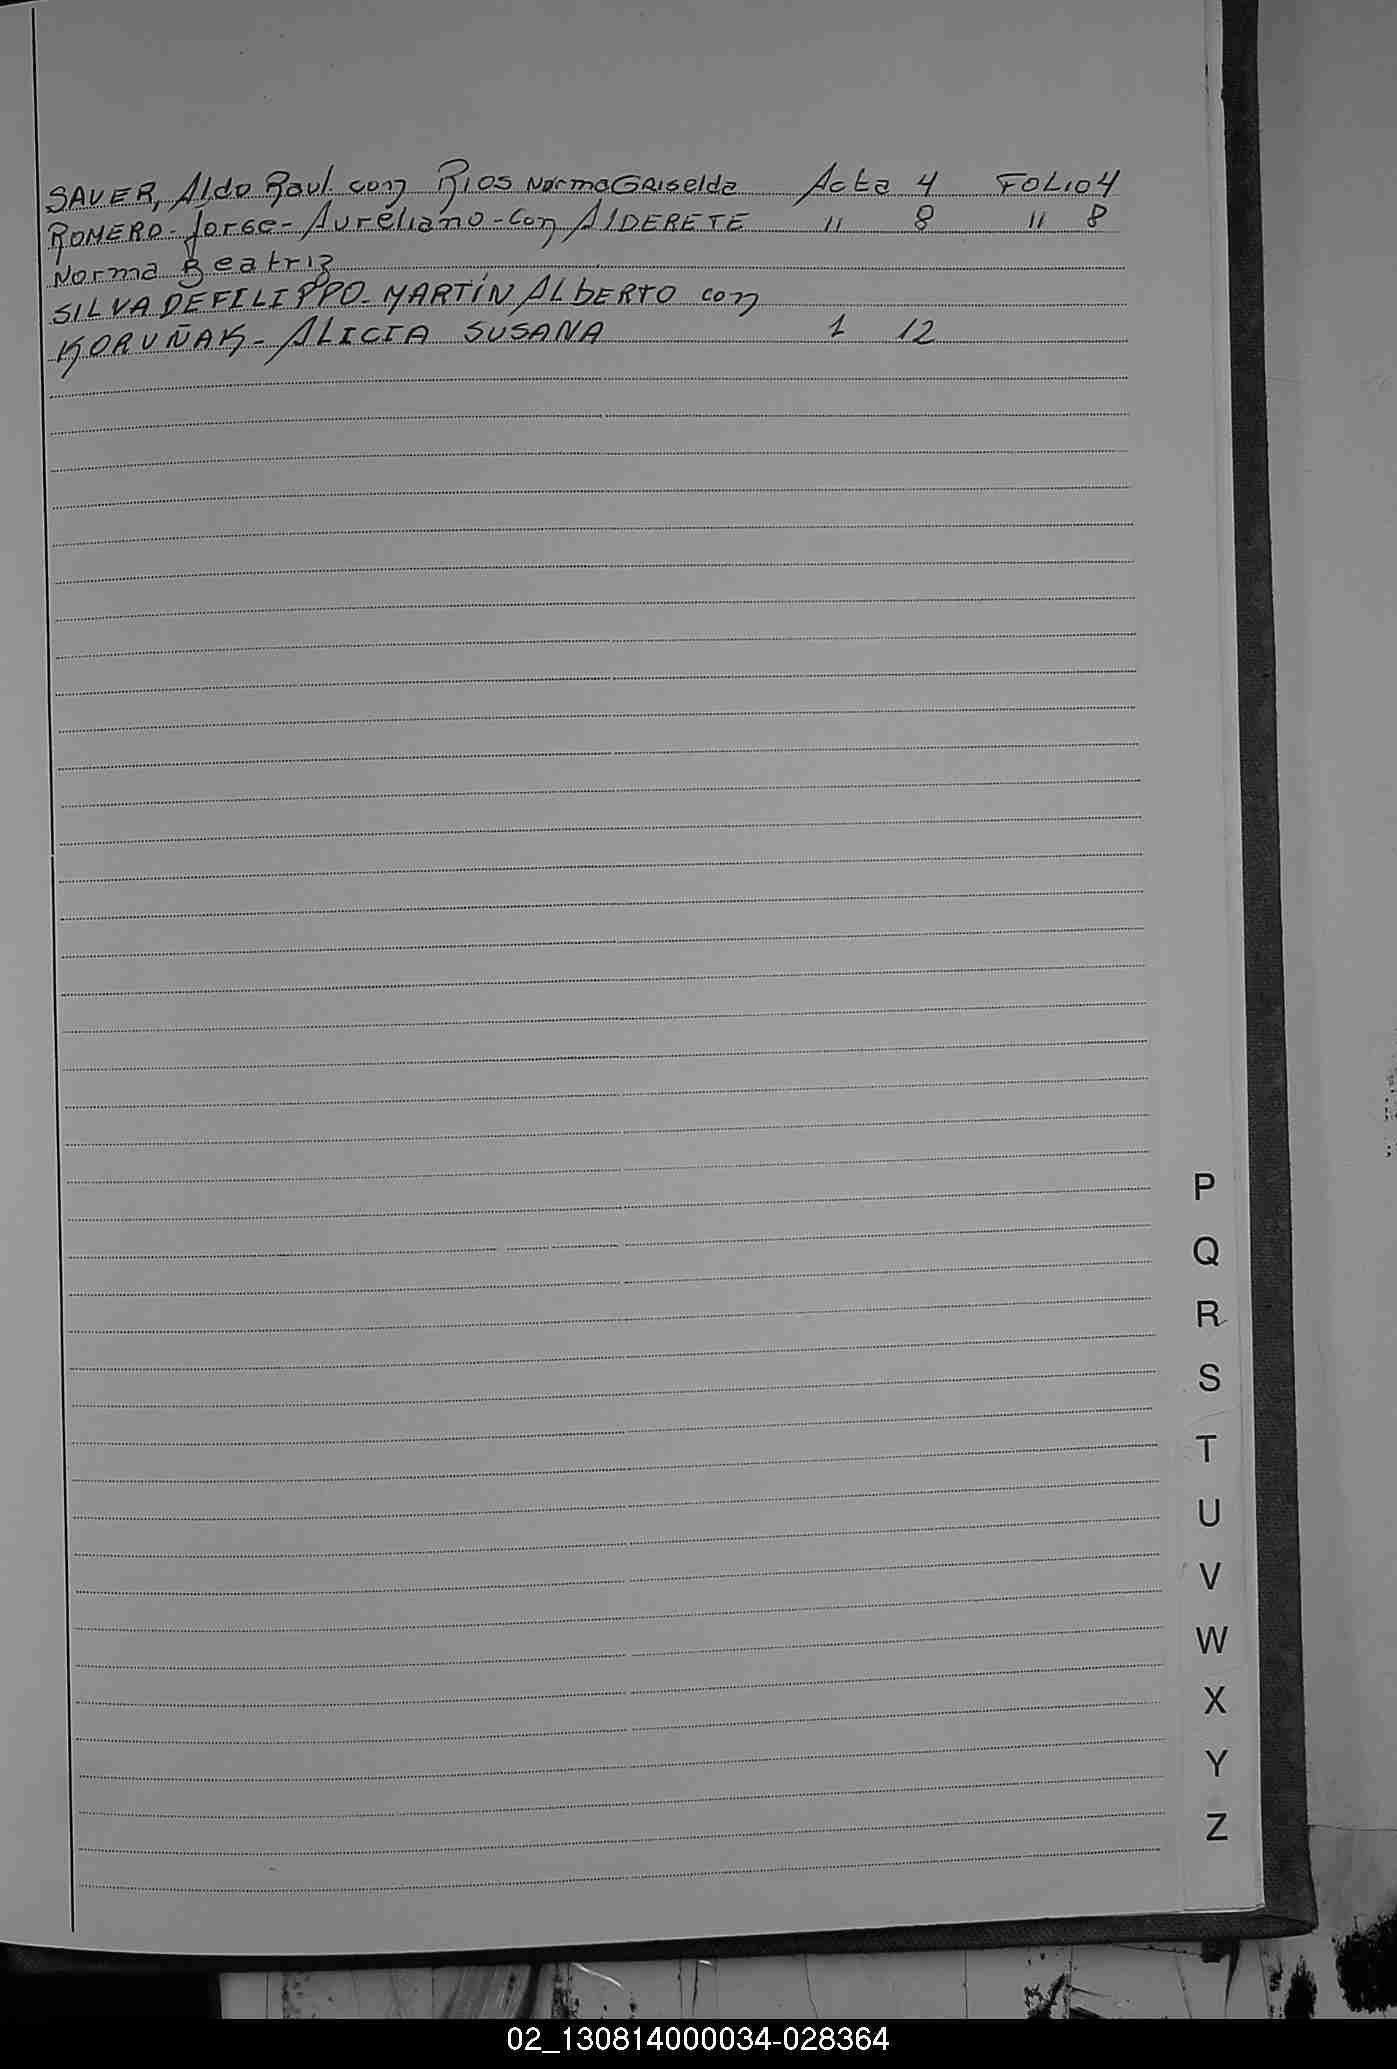 SAUER, Aldo Raul con RIOS Norma Griselda Acta 4 FOLIO 4
ROMERO - Jorge - Aureliano - Con AlDERETE " 8 " 8
Norma Beatriz
SILVA DEFILIPPO - MARTÍN ALbERTO con
KORUÑAK - ALICIA SUSANA 1 12
P
Q
R
S
T
U
V
W
X
Y
Z
02_130814000034-028364